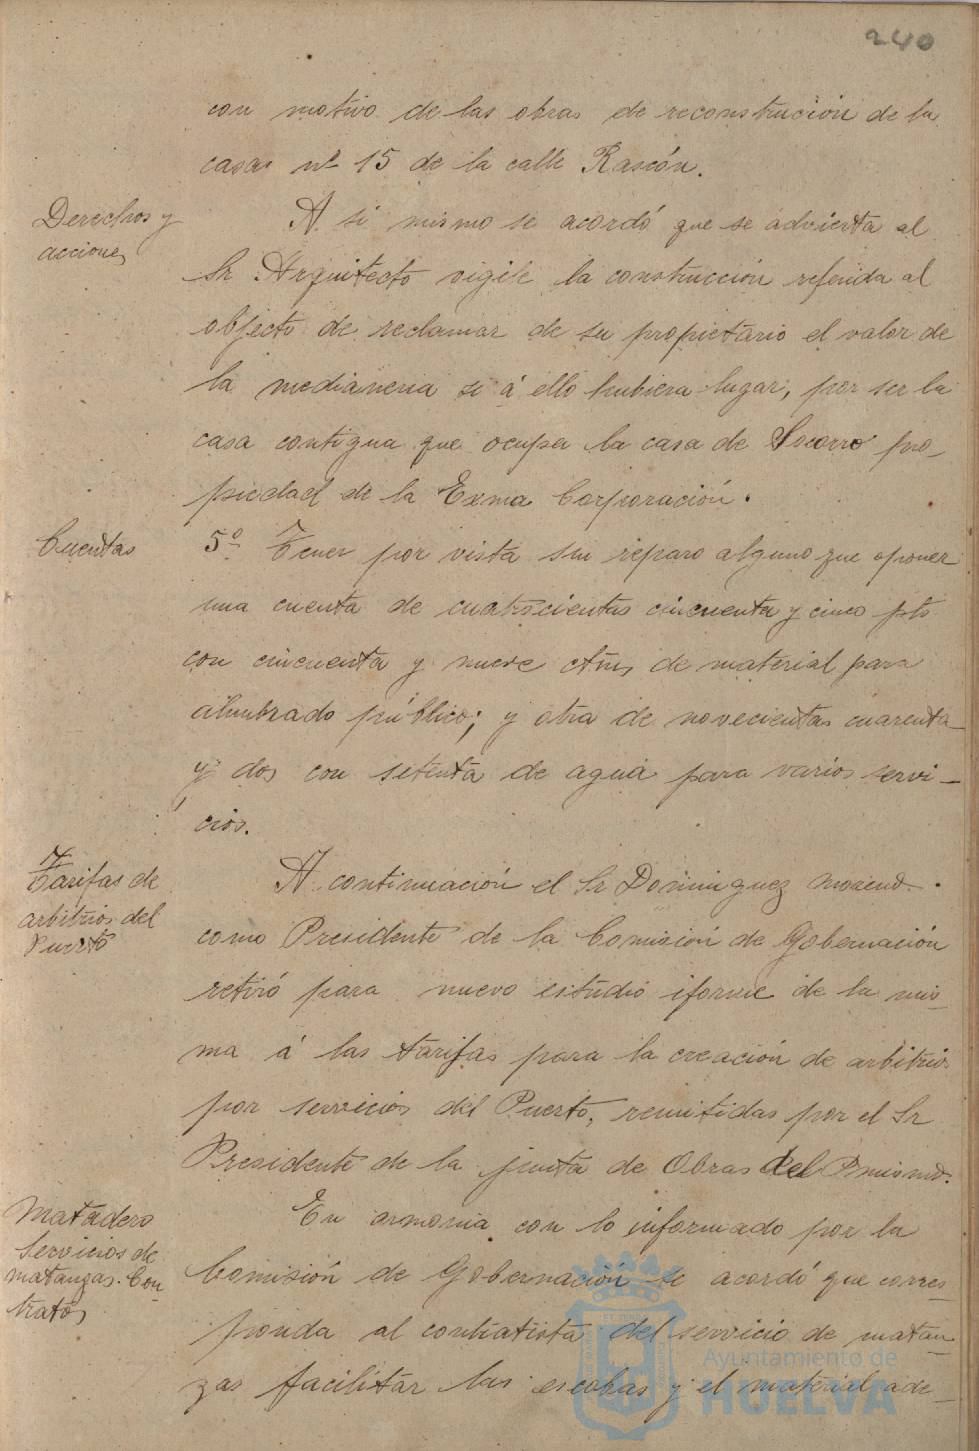 240
con motivo de las obras de reconstrucion de la
casas nº 15 de la calle Rascón.
Derechos y
acciones
A si mismo se acordó que se advierta al
Sr Arquitecto vigile la construcción referida al
objecto de reclamar de su propietario el valor de
la medianeria si á ello hubiera lugar, por ser la
casa contigua que ocupa la casa de Socorro pro-
piedad de la Exma Corporación.
Cuentas
5º Tener por vista sin reparo alguno que oponer
una cuenta de cuatrocientas cincuenta y cinco pts
con cincuenta y nueve ctms de material para
alumbrado público; y otra de novecientas cuarenta
y dos con setenta de agua para varios servi-
cios.
Tarifas de
arbitrios del
Puerto
A continuación el Sr Dominguez Moreno
como Presidente de la Comisión de Gobernación
retiró para nuevo estudio iforme de la mis-
ma á las tarifas para la creación de arbitrios
por servicios del Puerto, remitidas por el Sr
Presidente de la junta de Obras del mismo.
Matadero
Servicios de
matanzas. Con-
tratos
En armonia con lo informado por la
Comisión de Gobernación se acordó que corres-
ponda al contratista del servicio de matan-
zas facilitar las escobas y el material ade-
Ayuntamiento de
HUELVA